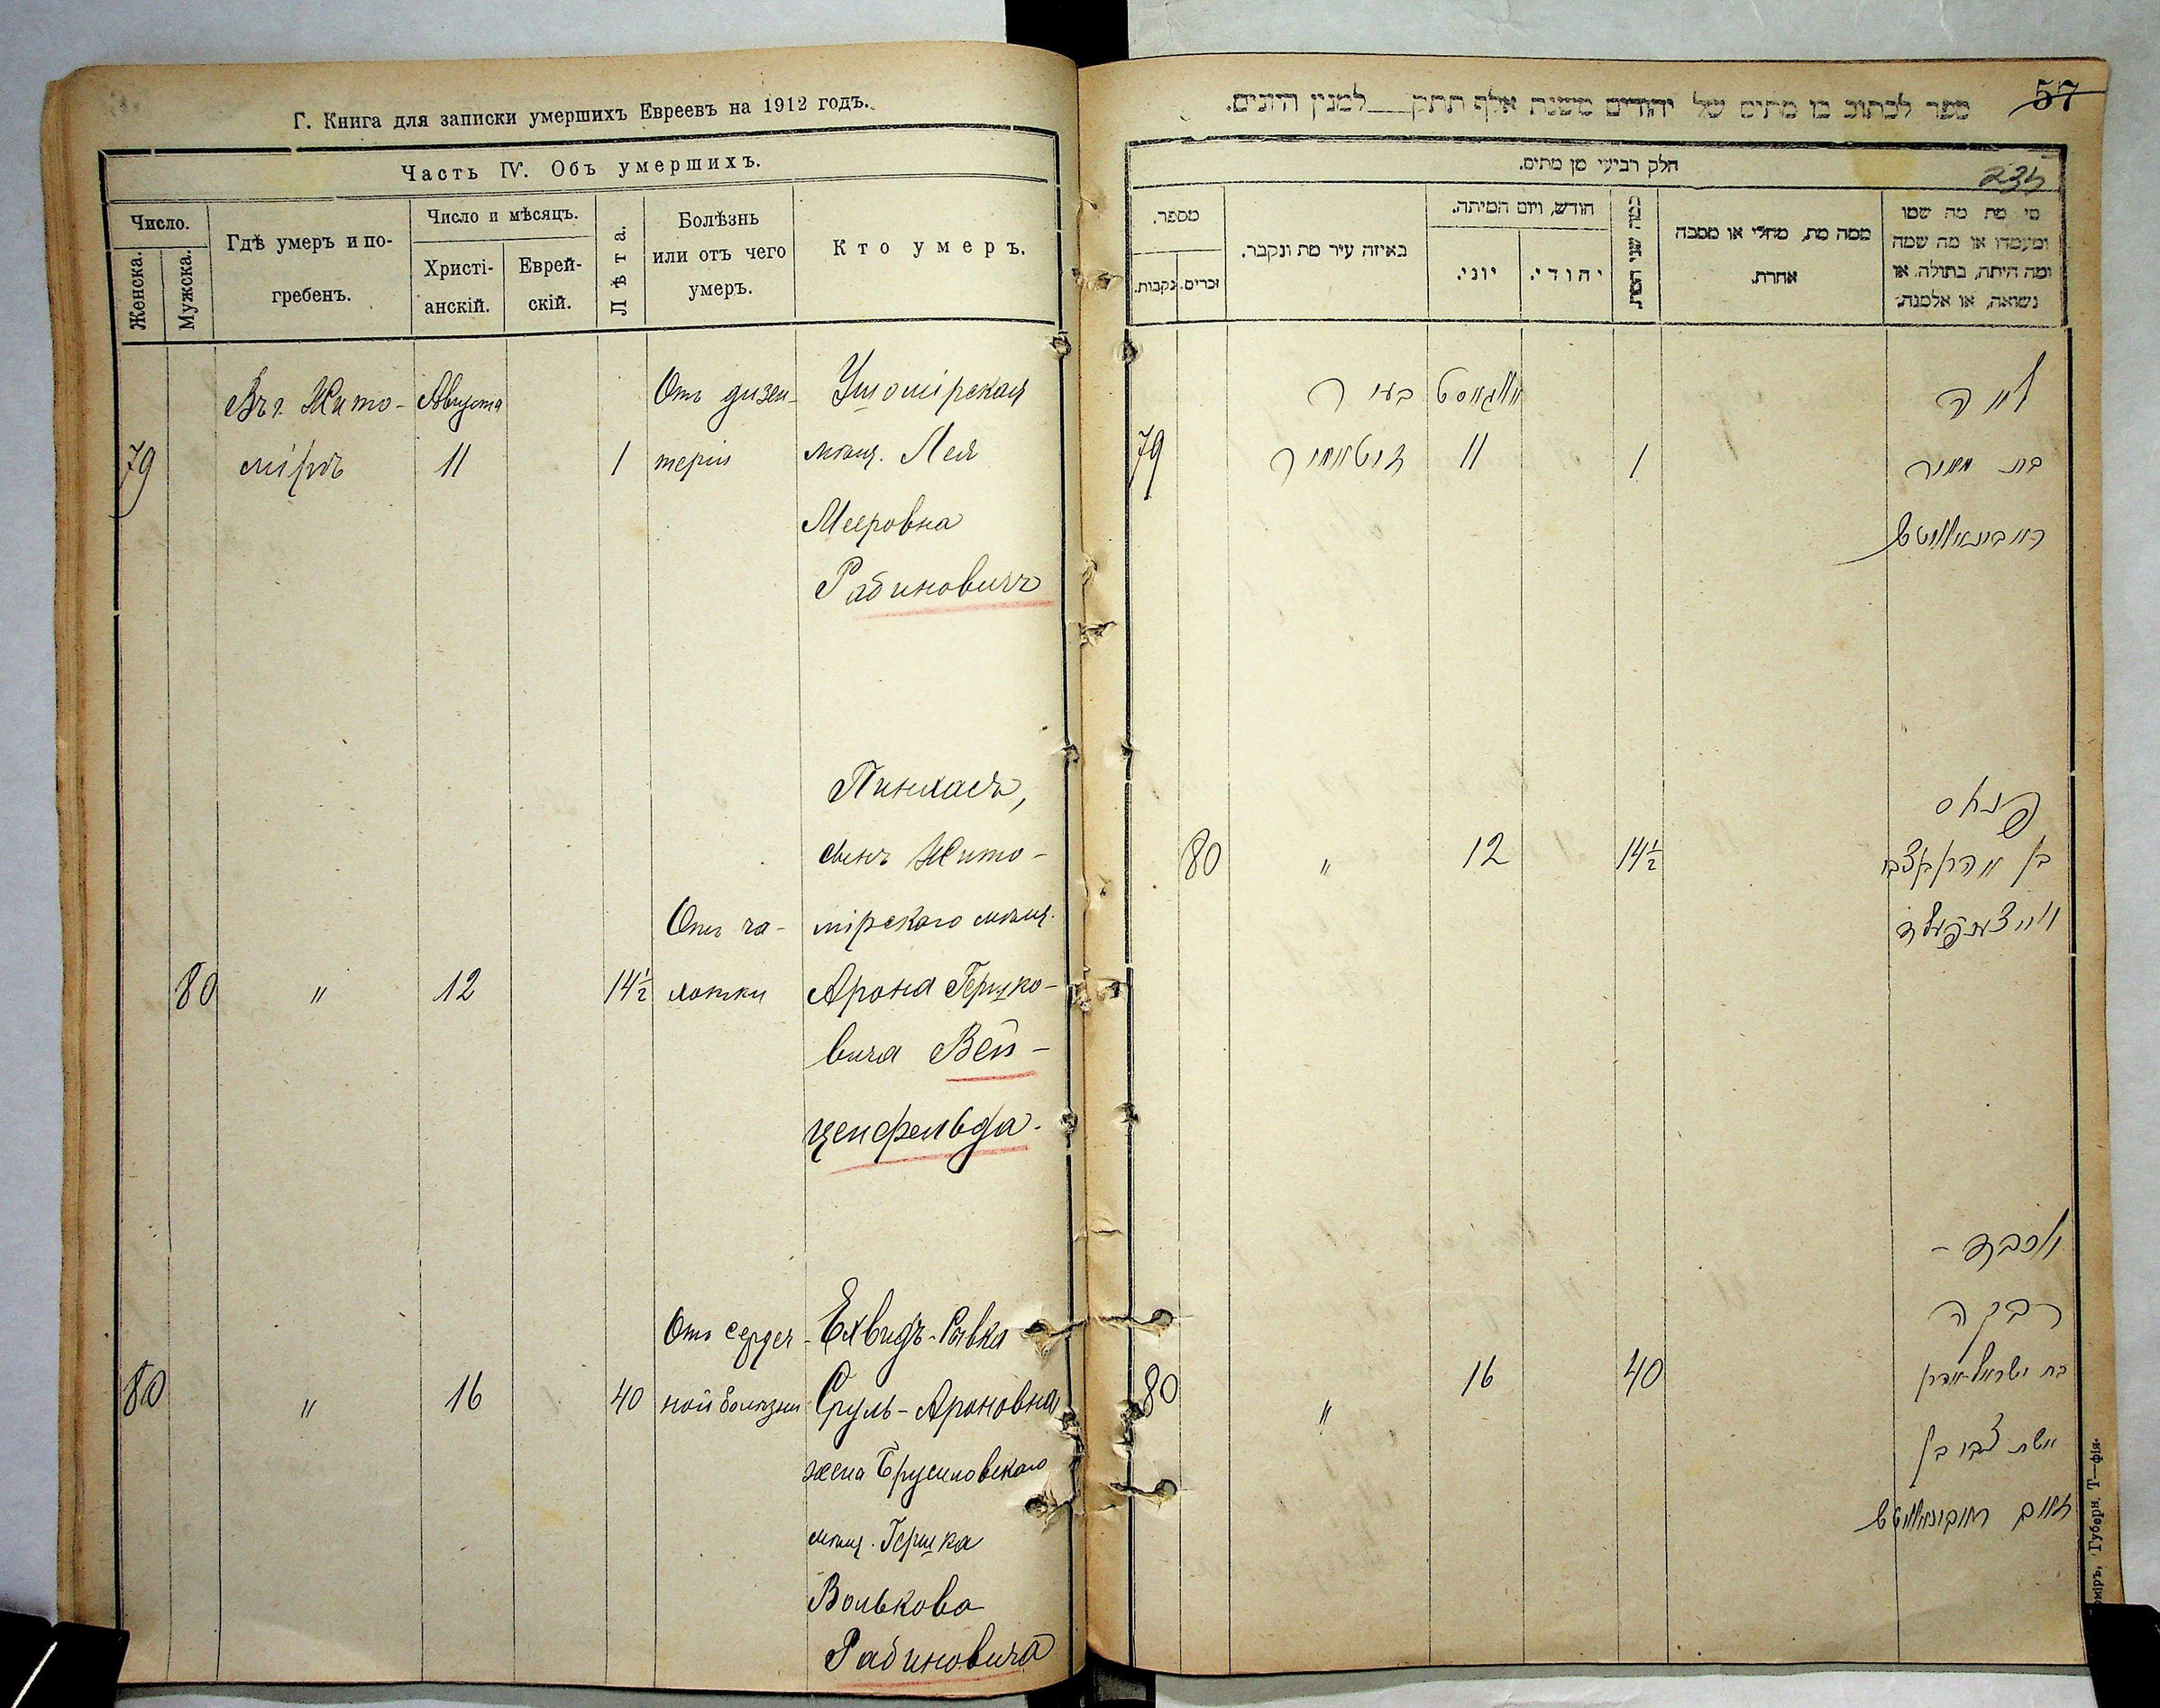 Г. Книга для записки умершихъ Евреевъ на 1912 годъ.
Часть IV. Объ умершихъ.
Число.
Женска.
Мужска.
Гдѣ умеръ и по-
гребенъ.
Число и мѣсяцъ.
Христі-
анскій.
Еврей-
скій.
Лѣта.
Болѣзнь
или отъ чего
умеръ.
Кто умеръ.
79
Въ г. Жито-
мірѣ
Августа
11
1
Отъ дизен-
теріи
Ушомірская
мѣщ. Лея
Мееровна
Рабиновичъ
80
"
12
14½
Отъ ча-
хотки
Пинхасъ,
сынъ Жито-
мірскаго мѣщ.
Арона Гершко-
вича Вей-
ценфельда.
80
"
16
40
Отъ сердеч-
ной болѣзни
Ехвидъ-Ривка
Сруль-Ароновна
жена Брусиловскаго
мѣщ. Гершка
Волькова
Рабиновича
57
ספר לכתוב בו מתים של יהודים משנת אלף תתק___למנין היונים.
חלק רביעי מן מתים.
234
מספר.
נקבות.
זכרים.
באיזה עיר מת ונקבר.
חודש, ויום המיתה.
יוני.
יהודי.
כמה שני המת.
ממה מת, מחלי או מסבה
אחרת.
מי מת מה שמו
ומעמדו או מה שמה
ומה היתה, בתולה, או
נשואה, או אלמנה.
79
בעיר
זיטאמיר
אווגוסט
11
1
לאה
בת מאיר
ראבינאוויטש
80
"
12
14½
פנחס
בן אהרן צבי
ווייצענפעלד
80
"
16
40
יוכבד -
רבקה
בת ישראל אהרן
אשת צבי בן
זאב ראבינאוויטש